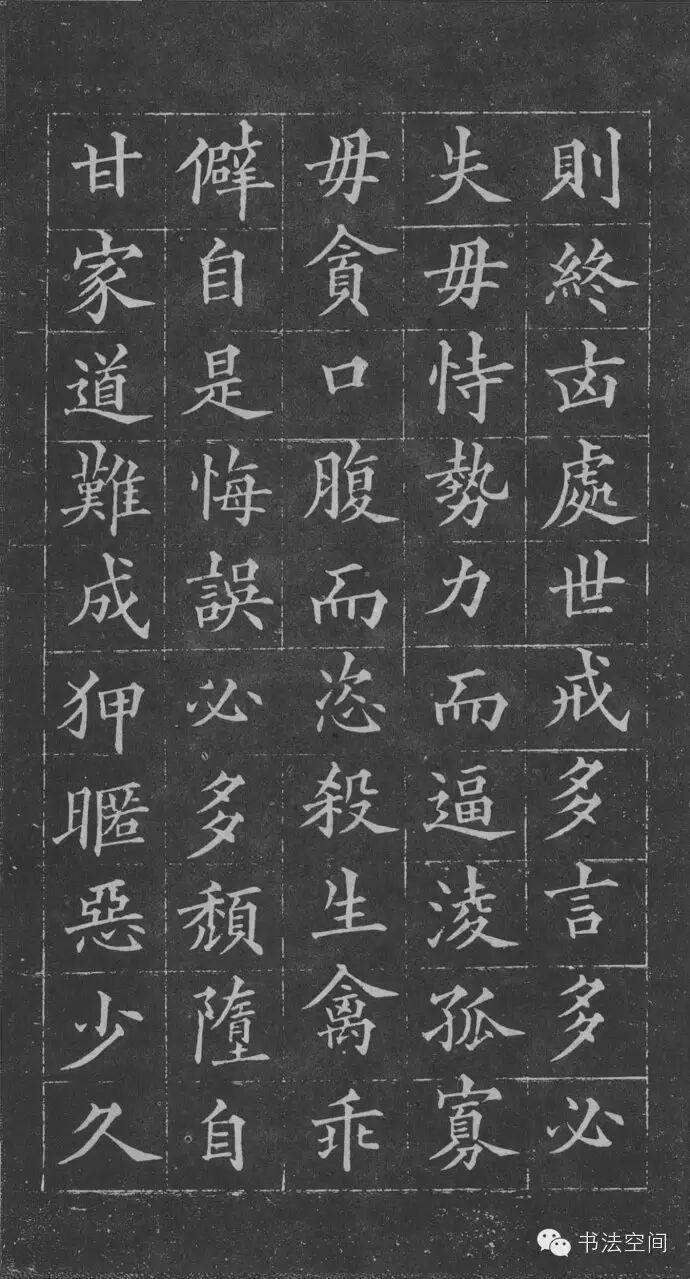 則終凶處世戒多言言多必
失毋恃勢力而逼淩孤寡
毋貪口腹而恣殺生禽乖
僻自是悔誤必多頹墮自
甘家道難成狎暱惡少久
书法空间